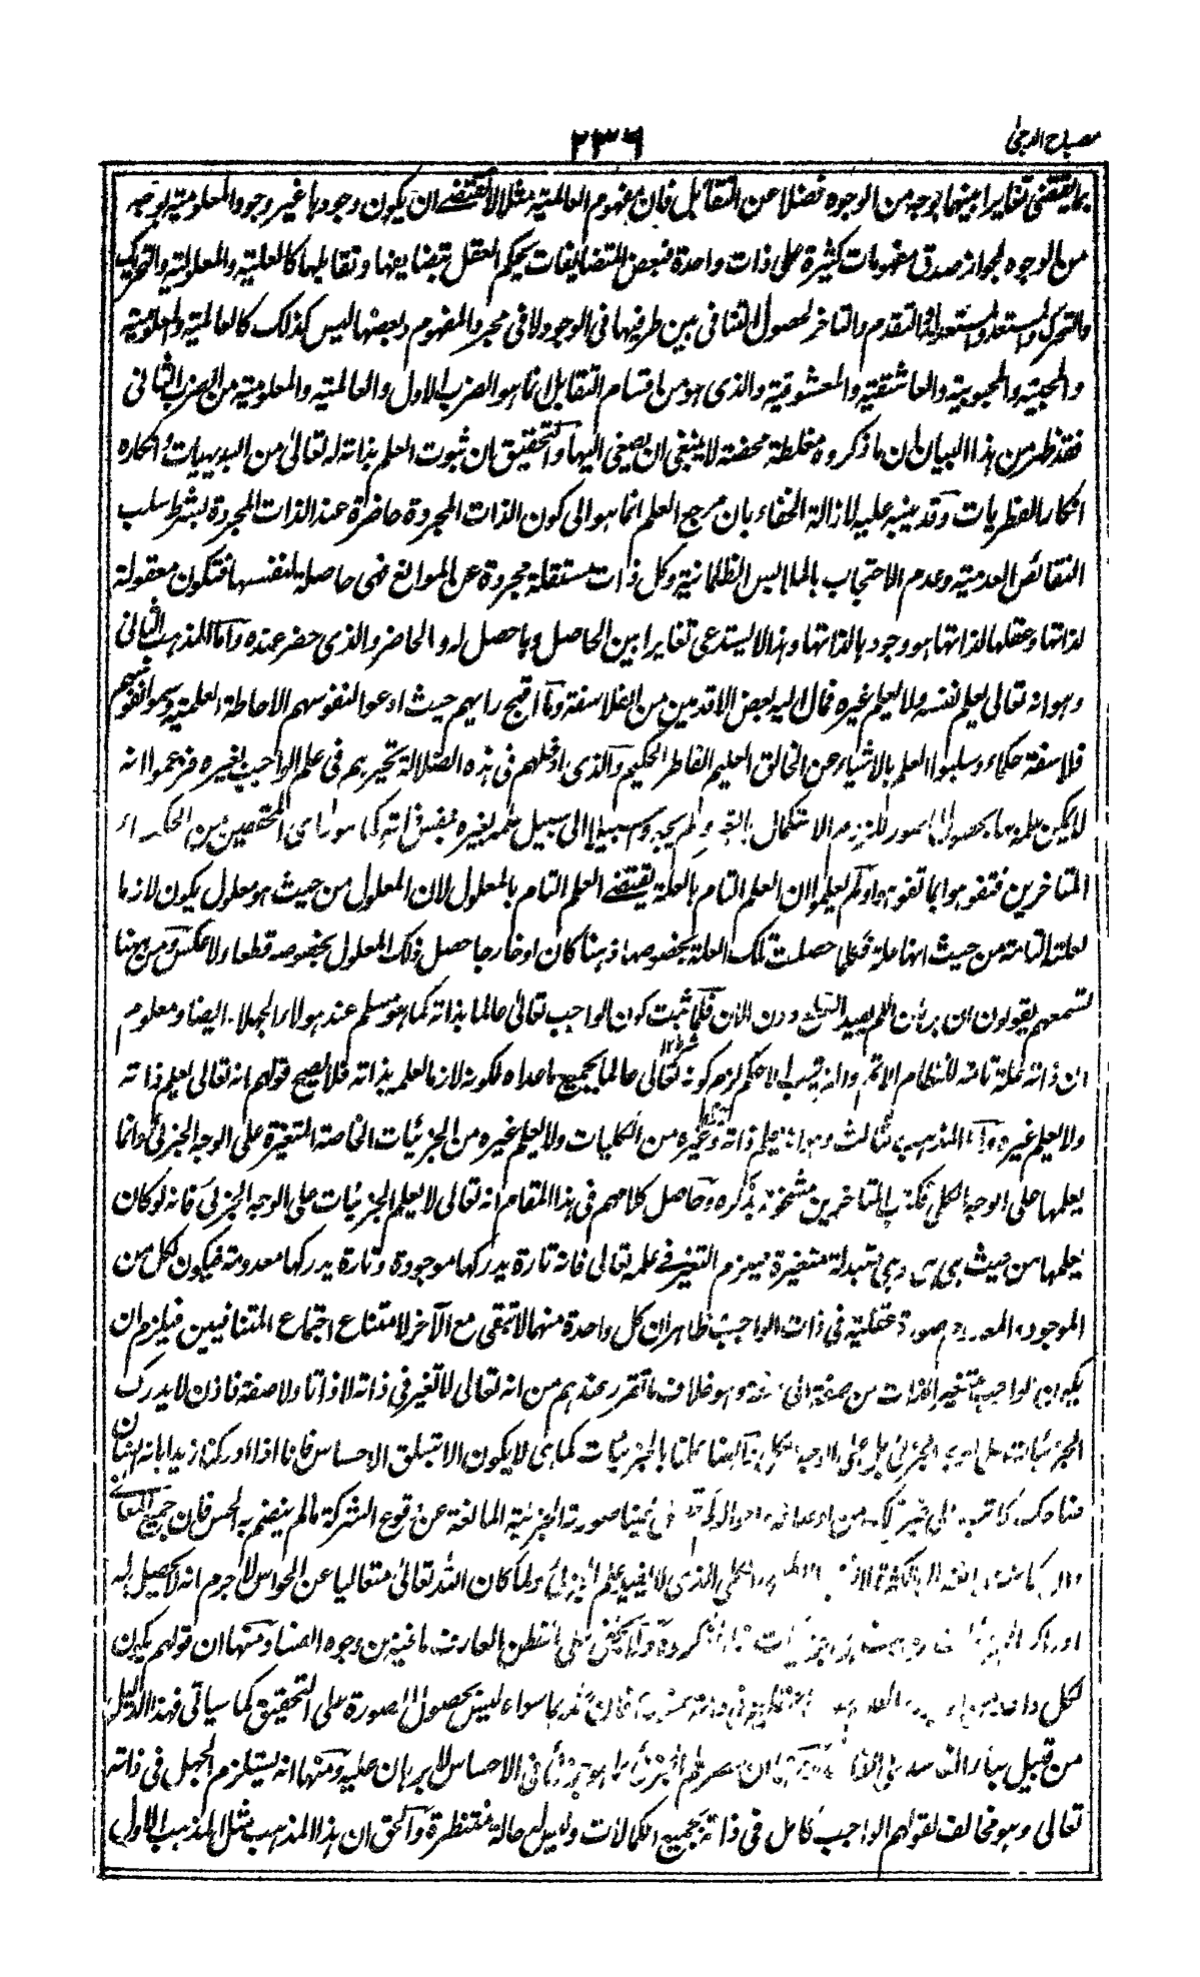 مصباح الدجى
٢٣٦
بما يقتضى تغايرا بينهما بوجه من الوجوه فضلا عن التقابل فان مفهوم العالمية مثلا لا يقتضى ان يكون وجودها غير وجود المعلومية بوجه
من الوجوه لجواز صدق مفهومات كثيرة على ذات واحدة فبعض المتضايفات يحكم العقل بتضايفها وتقابلها كالعلية والمعلولية والتحريك
والتحرك والمستعد والمستعد له والتقدم والتاخر لحصول التنافى بين طرفيها فى الوجود لا فى مجرد المفهوم وبعضها ليس كذلك كالعالمية والمعلومية
والمحبية والمحبوبية والعاشقية والمعشوقية والذى هو من اقسام التقابل انما هو الضرب الاول والعالمية والمعلومية من الضرب الثانى
فقد ظهر من هذا البيان ان ما ذكروه مغلطة محضة لا ينبغى ان يصغى اليها والتحقيق ان ثبوت العلم بذاته له تعالى من البديهيات انكاره
انكار الفطريات وقد ينبه عليه لازالة الخفاء بان مرجع العلم انما هو الى كون الذات المجردة حاضرة عند الذات المجردة بشرط سلب
النقائص العدمية وعدم الاحتجاب بالملابس الظلمانية وكل ذات مستقلة مجردة عن الموانع فهى حاصلة لنفسها فتكون معقولة
لذاتها وعقلها لذاتها هو وجودها لذاتها وهذا لا يستدعى تغايرا بين الحاصل وما حصل له والحاضر والذى حضر عنده واما المذهب الثانى
وهو انه تعالى يعلم نفسه ولا يعلم غيره فمال اليه بعض الاقدمين من الفلاسفة وما اقبح رايهم حيث ادعوا لنفوسهم الاحاطة العلمية وسموا نفوسهم
فلاسفة حكماء وسلبوا العلم بالاشياء عن الخالق العليم الفاطر الحكيم والذى ادخلهم فى هذه الضلالة تحيرهم فى علم الواجب بغيره فزعموا انه
لا يمكن علمه بحصول الصور للزوم الاستكمال بالغير ولم يجدوا سبيلا الى سبيل علمه بغيره بنفس ذاته كما هو راى المحققين من الحكماء
المتاخرين فتفوهوا بما تفوهوا ولم يعلموا ان العلم التام بالعلة يقتضى العلم التام بالمعلول لان المعلول من حيث هو معلول يكون لازما
لعلته التامة من حيث انها علة فكلما حصلت تلك العلة بخصوصها ذهنا كان او خارجا حصل ذلك المعلول بخصوصه قطعا ولا عكس ومن ههنا
تسمعهم يقولون ان برهان اللم يفيد القطع دون الان فلما ثبت كون الواجب تعالى عالما بذاته كما هو مسلم عند هؤلاء الجهلاء ايضا ومعلوم
ان ذاته علة تامة للنظام الاتم والترتيب الاحكم لزم كونه تعالى عالما بجميع ما عداه لكونه لازما لعلمه بذاته فلا يصح قولهم انه تعالى يعلم ذاته
ولا يعلم غيره واما المذهب الثالث وهو انه يعلم ذاته وغيره من الكليات ولا يعلم غيره من الجزئيات الخاصة المتغيرة على الوجه الجزئى وانما
يعلمها على الوجه الكلى فكتب المتاخرين مشحونة بذكره وحاصل كلامهم فى هذا المقام انه تعالى لا يعلم الجزئيات على الوجه الجزئى فانه لو كان
يعلمها من حيث هى هى وهى متبدلة متغيرة فيلزم التغير فى علمه تعالى فانه تارة يدركها موجودة وتارة يدركها معدومة فيكون لكل من
الموجود والمعدوم صورة عقلية فى ذات الواجب ظاهر ان كل واحدة منها لا تبقى مع الآخر لامتناع اجتماع المتنافيين فيلزم ان
يكون الواجب متغير الذات من صفة الى صفة وهو خلاف ما تقرر عندهم من انه تعالى لا تغير فى ذاته لا ذاتا ولا صفة فاذن لا يدرك
الجزئيات على الوجه الجزئى بل على الوجه الكلى وايضا علمنا بالجزئيات كما هى لا يكون الا بتعلق الاحساس فانا اذا ادركنا زيدا بانه انسان
ضاحك كاتب الى غير ذلك من اوصافه صورة الجزئية المانعة عن وقوع الشركة ما لم ينضم به الحس فان جميع المعانى
الكلى الذى لا يفيد علم الجزئى ولما كان الله تعالى متعاليا عن الحواس لا جرم انه لا يحصل له
ادراك الجزئيات ولا يخفى على الفطن العارف ما فيه من وجوه الفساد منها ان قولهم يكون
لكل سواه ليس بحصول الصورة على التحقيق كما سياتى فهذا الدليل
من قبيل بناء الفاسد على الفاسد ان حصر علم الجزئى فى الاحساس لا برهان عليه ومنها انه يستلزم الجهل فى ذاته
تعالى وهو مخالف لقولهم الواجب كامل فى ذاته بجميع الكمالات وليس له حالة منتظرة والحق ان هذا المذهب مثل المذهب الاول